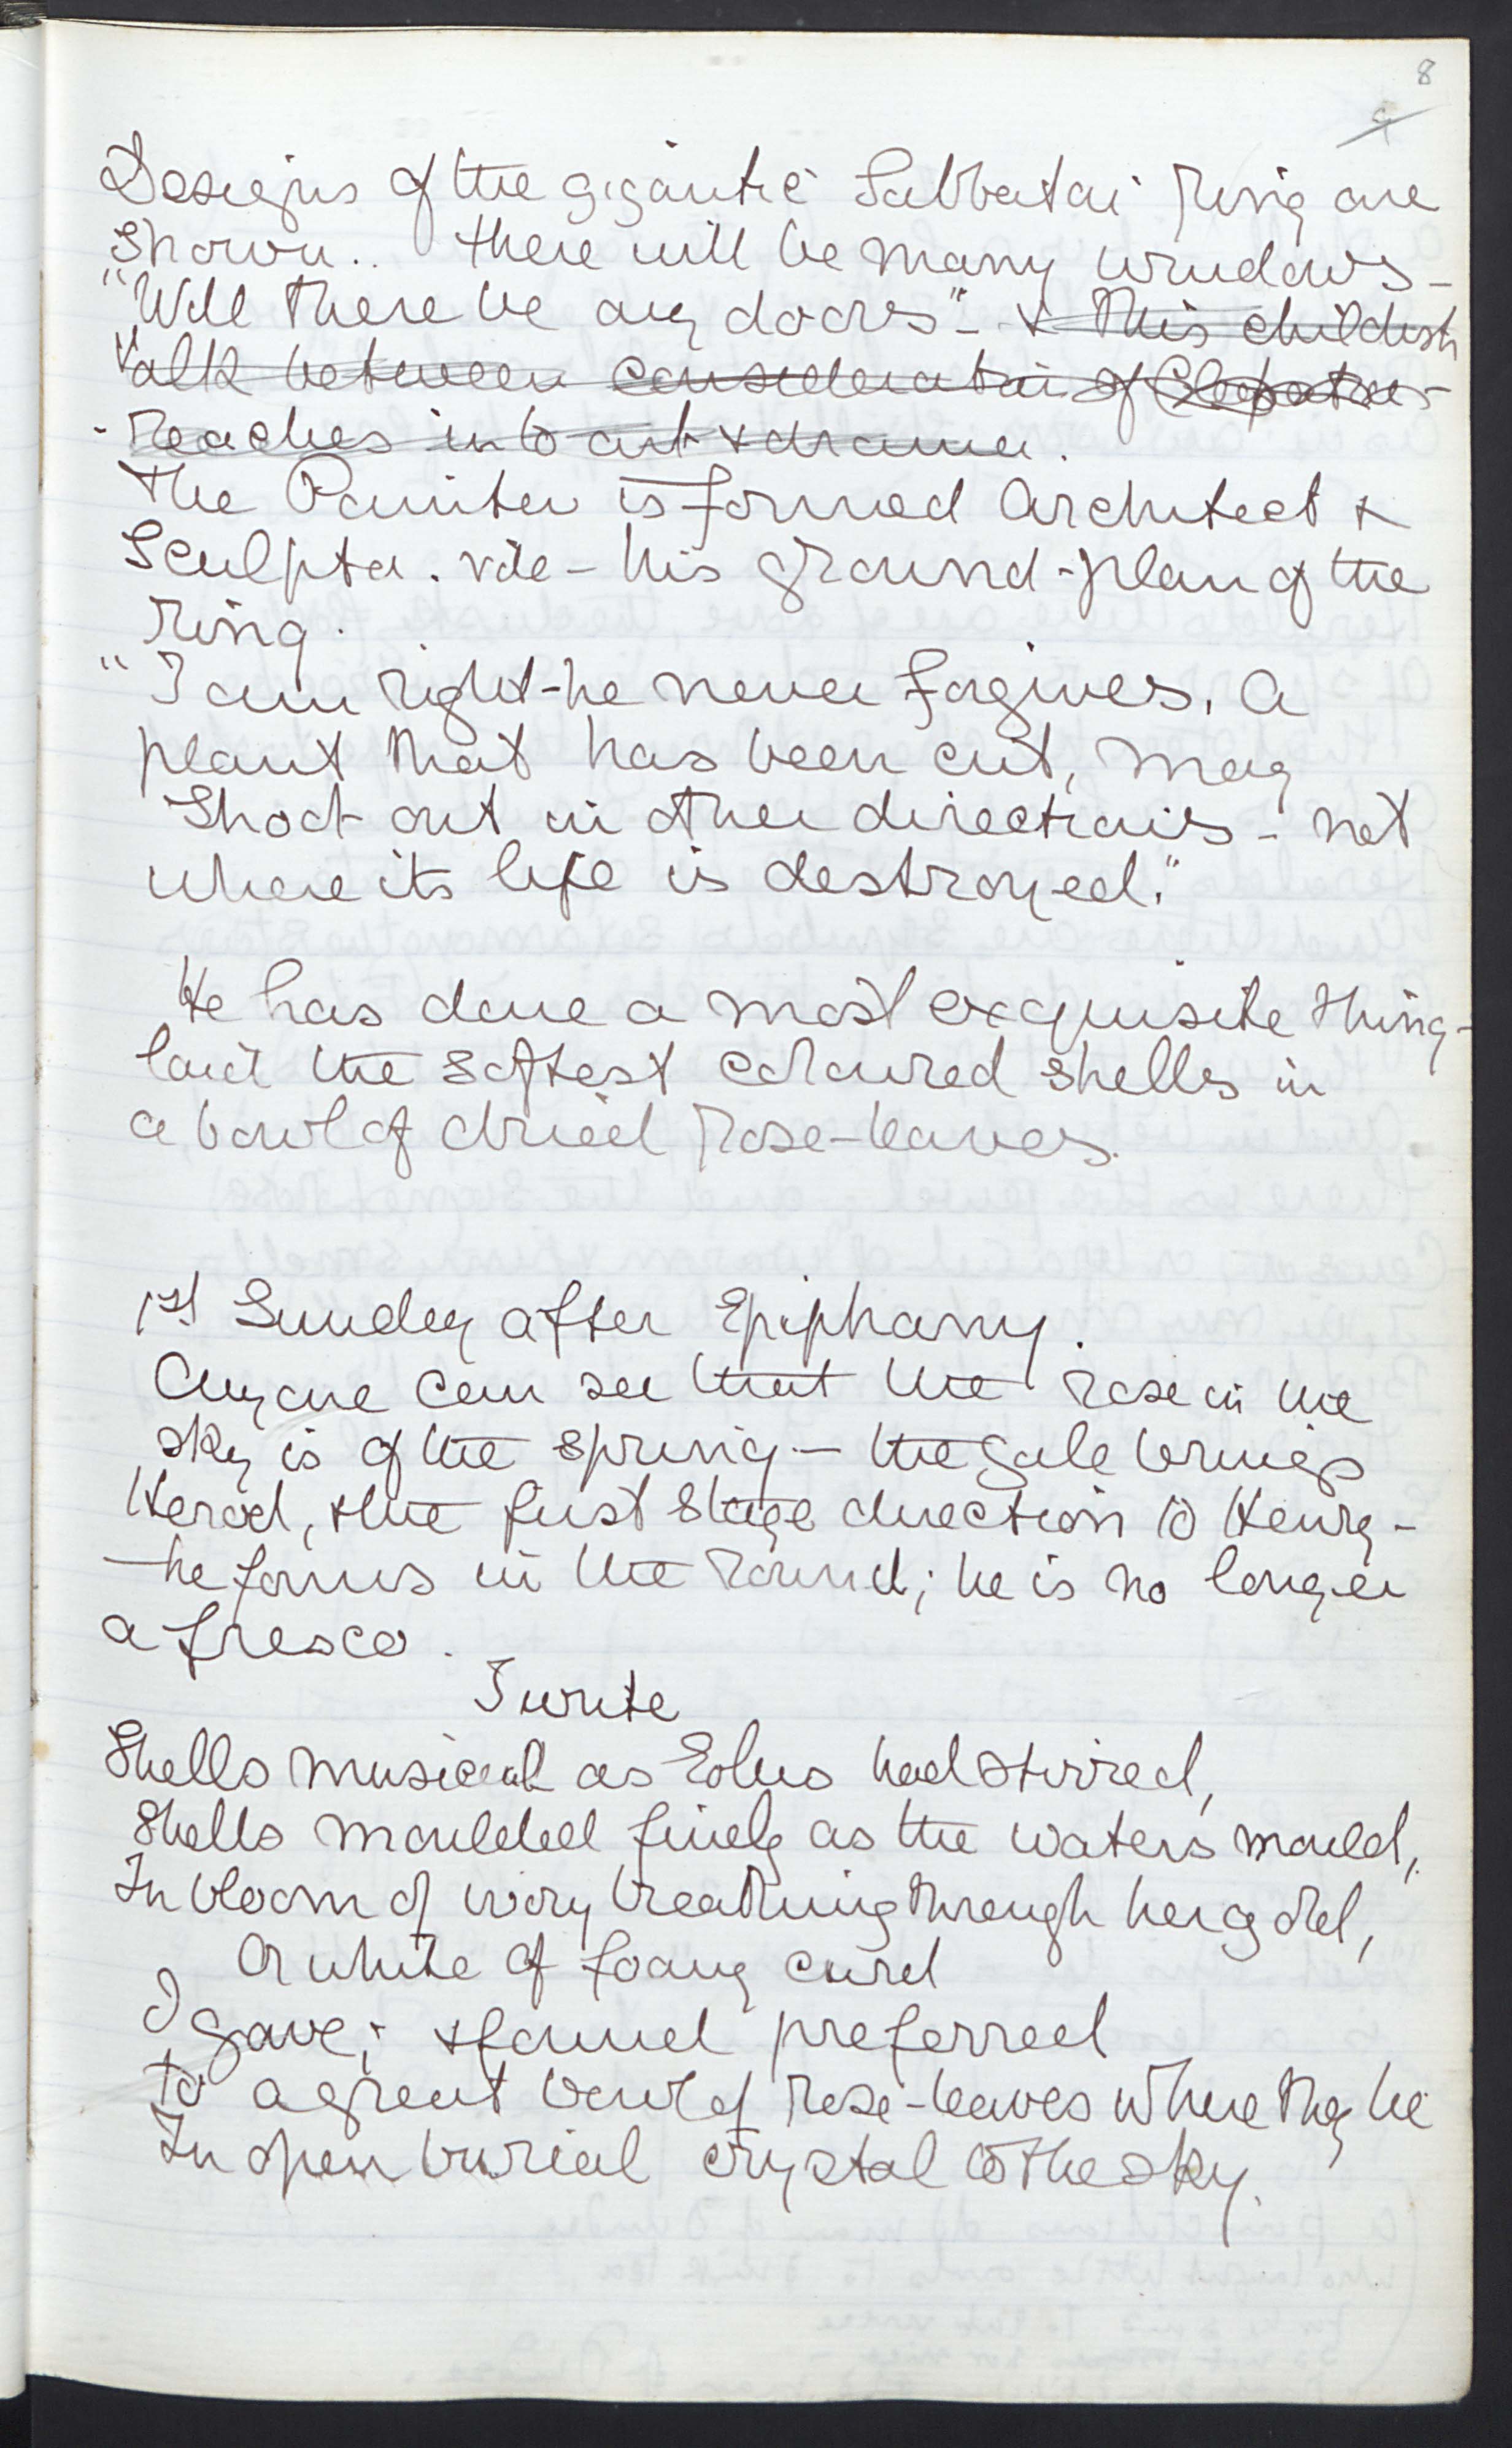 8
9
Designs of the gigantic Sabbatai Ring are
shown.. there will be many windows –
"Will there be any doors" – & this childish
talk between consideration of Cleopatra –
reaches into art & drama.
The Painter is formed Architect &
Sculptor. vide – his ground-plan of the
ring.
"I am right – he never forgives. A
plant that has been cut, may
shoot out in other directions – not
where its life is destroyed."
He has done a most exquisite thing –
laid the softest coloured shells in
a bowl of dried rose-leaves.
1st Sunday after Epiphany.
Anyone can see that the rose in the
sky is of the spring – the gale brings
Herod, & the first stage direction to Henry –
– he forms in the round; he is no longer
a fresco.
I write
Shells musical as Eolus had stirred,
Shells moulded finely as the waters mould,
In bloom of ivory breathing through her gold,
Or white of foamy curd
I gave; & found preferred
To a great bowl of rose-leaves where they lie
In open burial crystal to the sky.